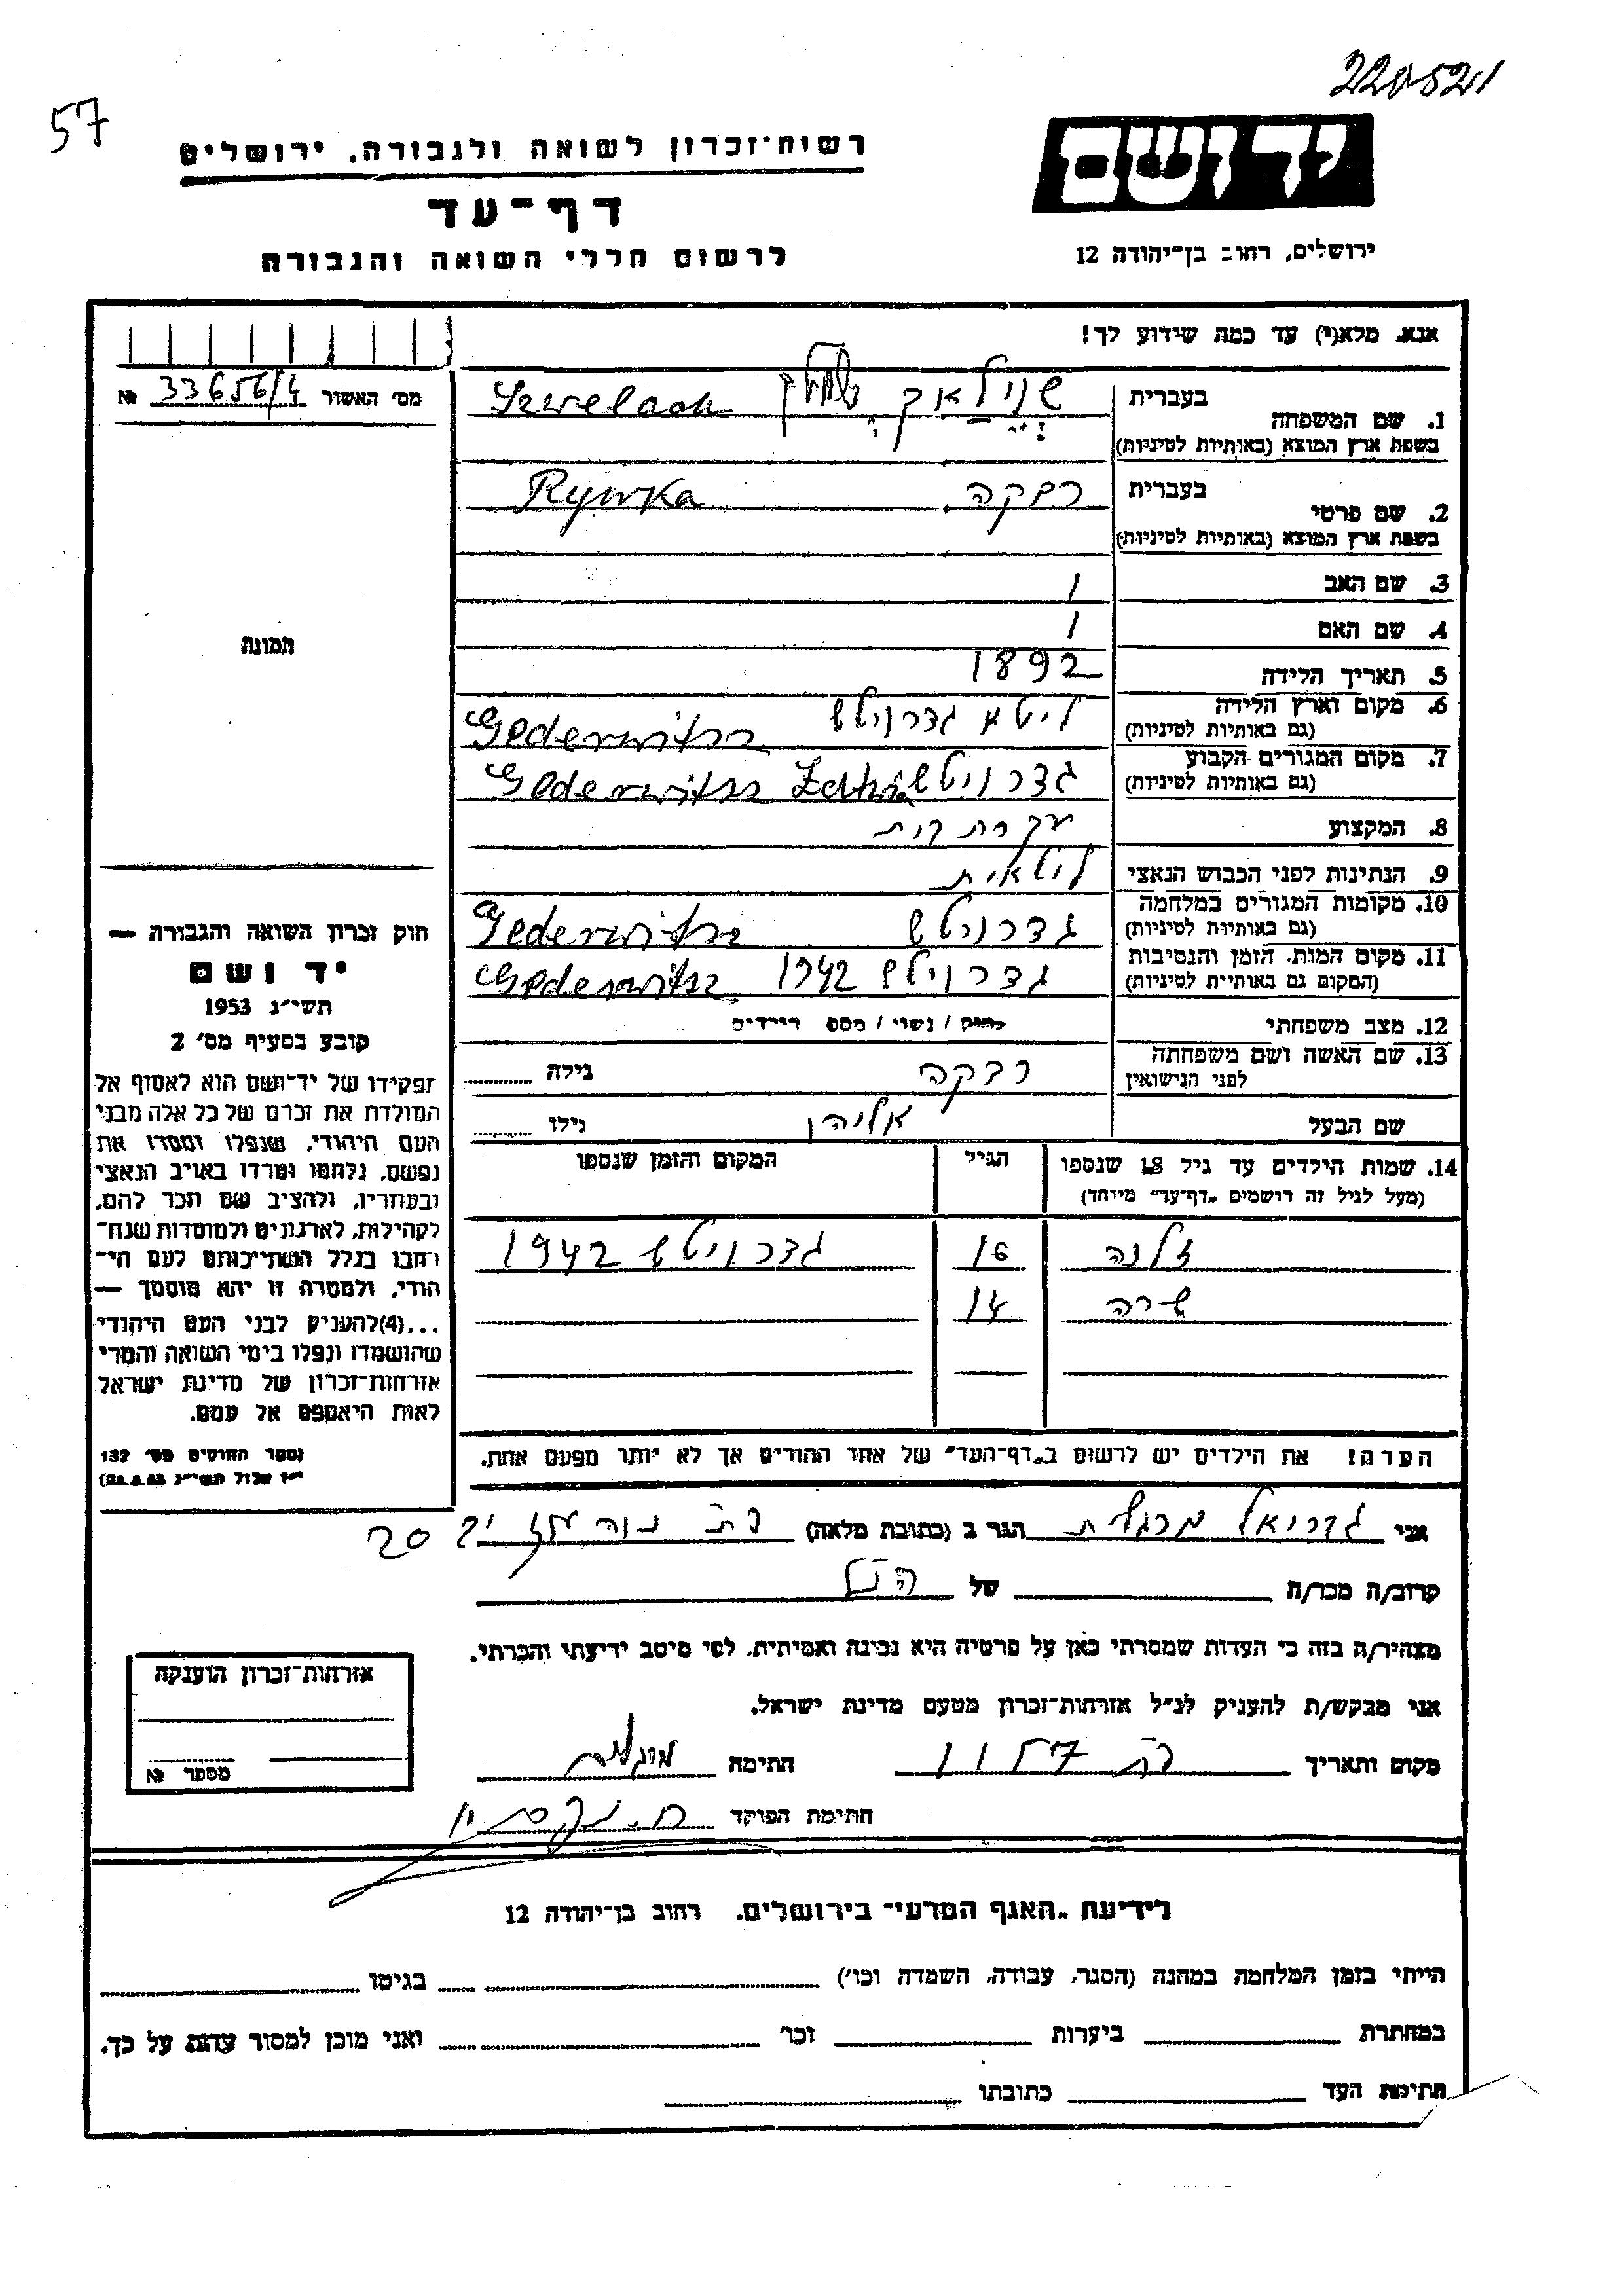 220521
57
יד ושם
רשות־זכרון לשואה ולגבורה. ירושלים
דף־עד
לרשום חללי השואה והגבורה
ירושלים, רחוב בן־יהודה 12
אנא, מלא(י) עד כמה שידוע לך!
מס׳ האשור 33656/4 №
בעברית
1. שם המשפחה
Szwelach
בשפת ארץ המוצא (באותיות לטיניות)
בעברית רבקה Rywka
2. שם פרטי
בשפת ארץ המוצא (באותיות לטיניות)
3. שם האב /
4. שם האם /
תמונה
5. תאריך הלידה 1892
6. מקום וארץ הלידה ליטא גדרויטש
(גם באותיות לטיניות)
7. מקום המגורים הקבוע גדרויטש
(גם באותיות לטיניות)
8. המקצוע עקרת בית
9. הנתינות לפני הכבוש הנאצי ליטאית
10. מקומות המגורים במלחמה גדרויטש
(גם באותיות לטיניות)
11. מקום המות, הזמן והנסיבות גדרויטש 1942
(המקום גם באותיות לטיניות)
12. מצב משפחתי רווק / נשוי / מספ׳ הילדים
13. שם האשה ושם משפחתה רבקה גילה
לפני הנישואין
שם הבעל אליהו גילו
14. שמות הילדים עד גיל 18 שנספו הגיל המקום והזמן שנספו
(מעל לגיל זה רושמים „דף־עד״ מיוחד)
זלדה 16 גדרויטש 1942
שרה 14
הערה! את הילדים יש לרשום ב„דף־העד״ של אחד ההורים אך לא יותר מפעם אחת.
חוק זכרון השואה והגבורה —
יד ושם
תשי״ג 1953
קובע בסעיף מס׳ 2
תפקידו של יד־ושם הוא לאסוף אל
המולדת את זכרם של כל אלה מבני
העם היהודי, שנפלו ומסרו את
נפשם, נלחמו ומרדו באויב הנאצי
ובעוזריו, ולהציב שם וזכר להם,
לקהילות, לארגונים ולמוסדות שנח־
רבו בגלל השתייכותם לעם הי־
הודי, ולמטרה זו יהא מוסמך —
...(4) להעניק לבני העם היהודי
שהושמדו ונפלו בימי השואה והמרי
אזרחות־זכרון של מדינת ישראל
לאות היאספם אל עמם.
(ספר החוקים מס׳ 132
י״ז אלול תשי״ג 28.8.53)
אני גבריאל מרגלית הגר ב (כתובת מלאה)
קרוב/ה מכר/ה של הנ״ל
מצהיר/ה בזה כי העדות שמסרתי כאן על פרטיה היא נכונה ואמיתית, לפי מיטב ידיעתי והכרתי.
אני מבקש/ת להעניק לנ״ל אזרחות־זכרון מטעם מדינת ישראל.
מקום ותאריך חתימה
חתימת הפוקד
אזרחות־זכרון הוענקה
מספר №
לידיעת „האגף המדעי״ בירושלים, רחוב בן־יהודה 12
הייתי בזמן המלחמה במחנה (הסגר, עבודה, השמדה וכו׳) בגיטו
במחתרת ביערות וכו׳ ואני מוכן למסור עדות על כך.
חתימת העד כתובתו